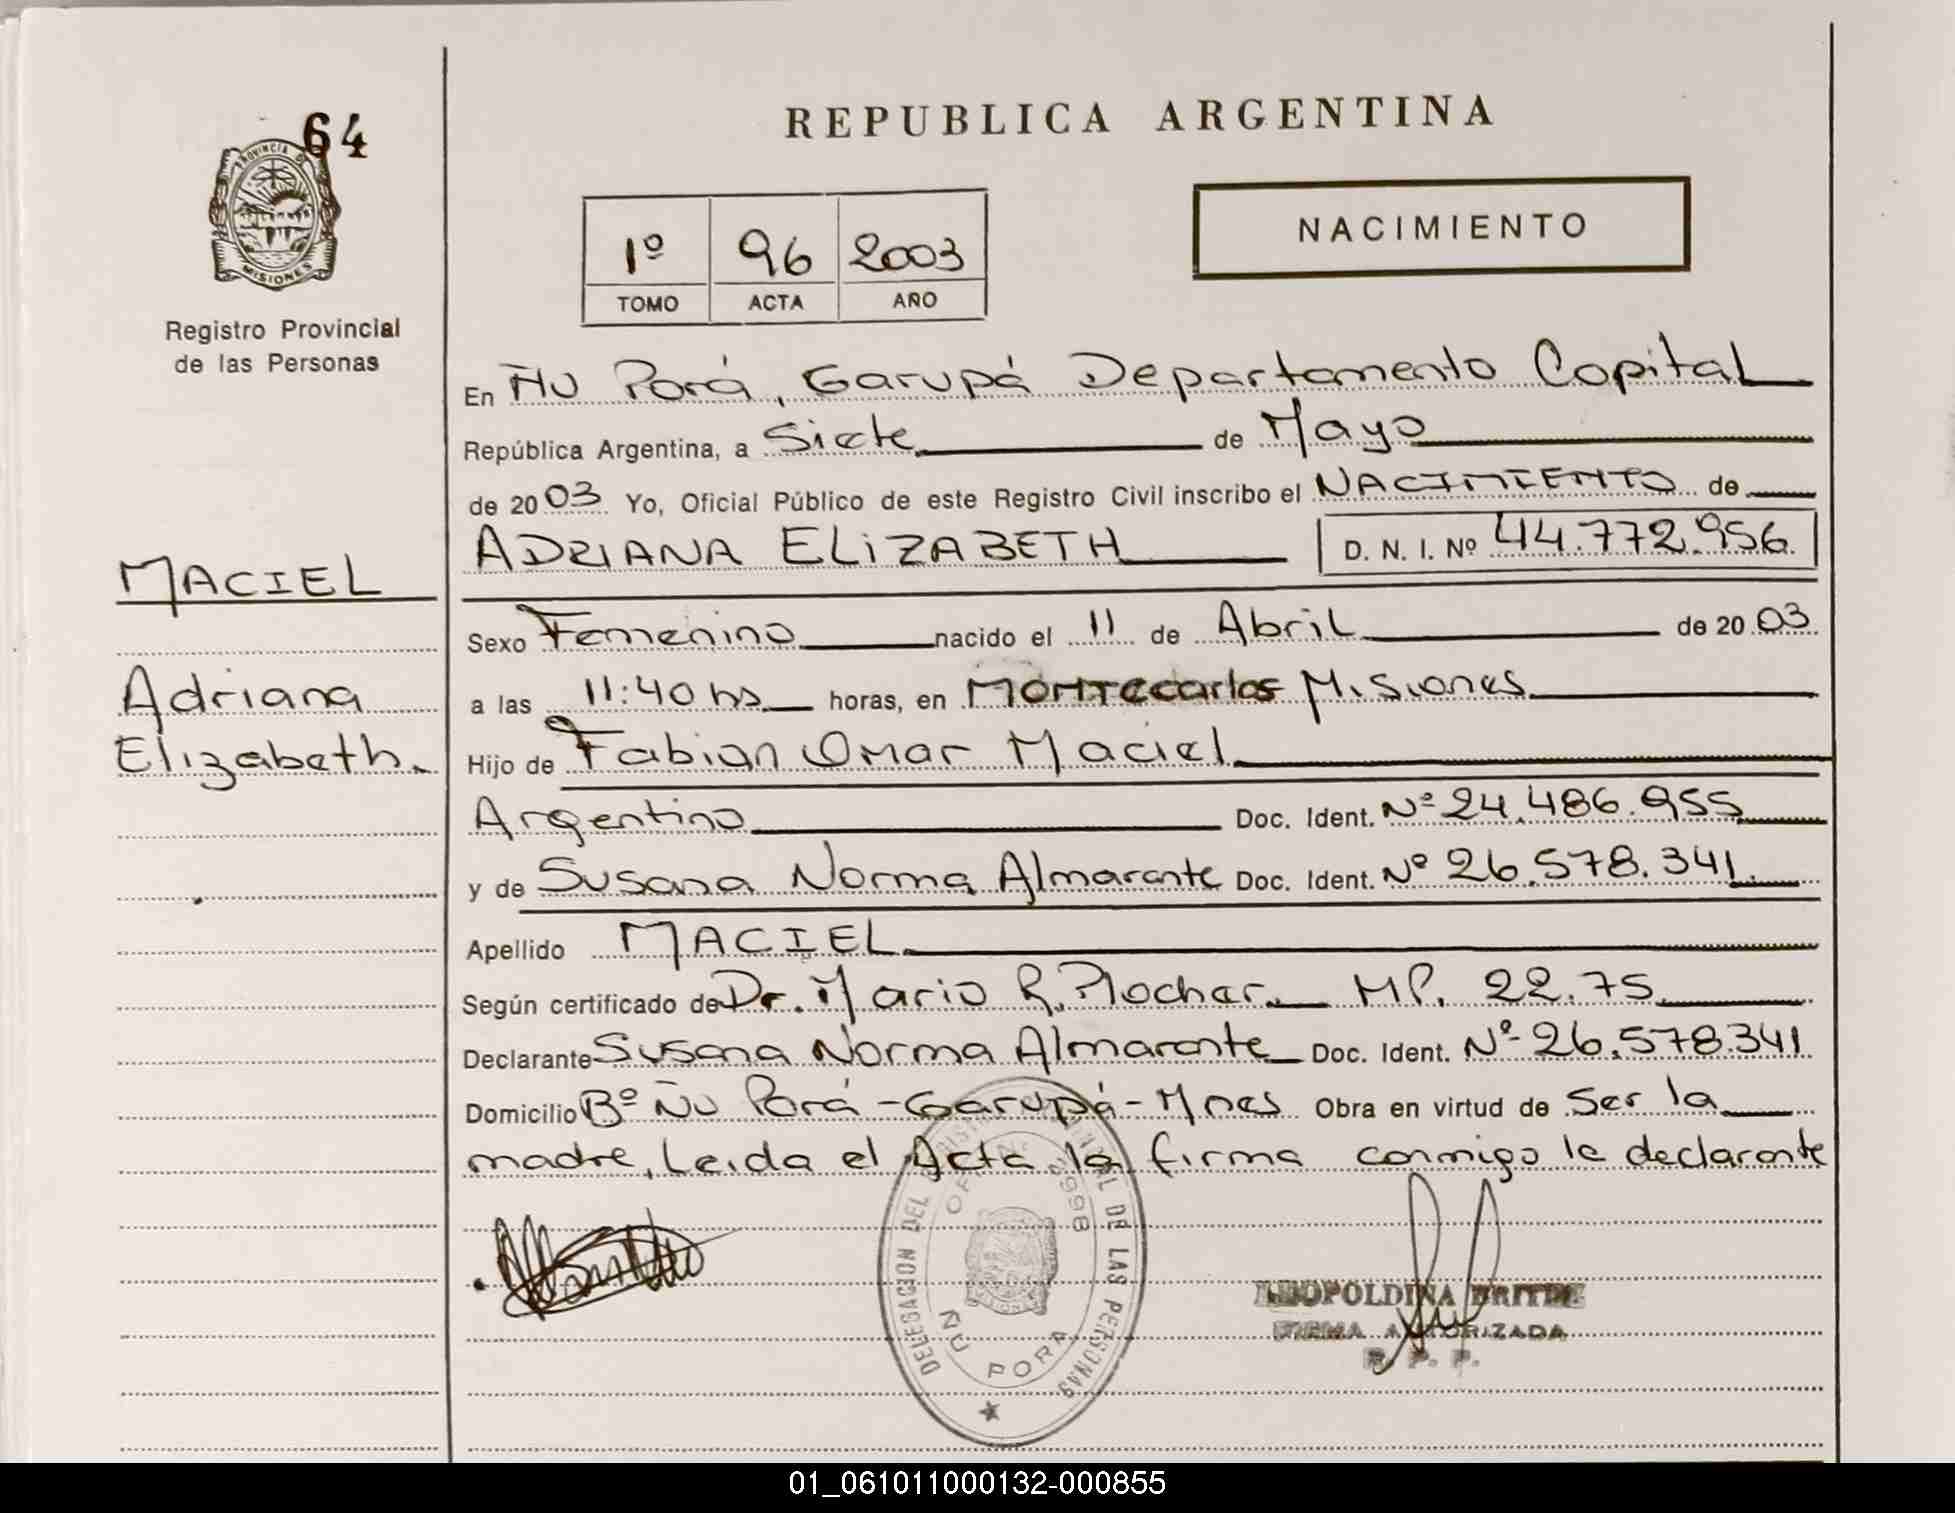 64
PROVINCIA DE
MISIONES
Registro Provincial
de las Personas
MACIEL
Adriana
Elizabeth.
REPUBLICA ARGENTINA
1º 96 2003
TOMO ACTA AÑO
NACIMIENTO
En Ñu Porá, Garupá Departamento Capital
República Argentina, a Siete de Mayo
de 2003 Yo, Oficial Público de este Registro Civil inscribo el NACIMIENTO de
ADRIANA ELIZABETH D. N. I. Nº 44.772.956
Sexo Femenino nacido el 11 de Abril de 2003
a las 11:40 hs horas, en MONTEcarlos Misiones
Hijo de Fabian Omar Maciel
Argentino Doc. Ident. Nº 24.486.955
y de Susana Norma Almarante Doc. Ident. Nº 26.578.341
Apellido MACIEL
Según certificado de Dr. Mario R. Plochar MP. 22.75
Declarante Susana Norma Almarante Doc. Ident. Nº 26.578.341
Domicilio Bº Ñu Porá - Garupá - Mnes Obra en virtud de Ser la
madre, Leida el Acta la firma conmigo la declarante
DELEGACION DEL REGISTRO PROVINCIAL DE LAS PERSONAS
ÑU PORA
LEOPOLDINA BRITEZ
FIRMA AUTORIZADA
R. P. P.
01_061011000132-000855